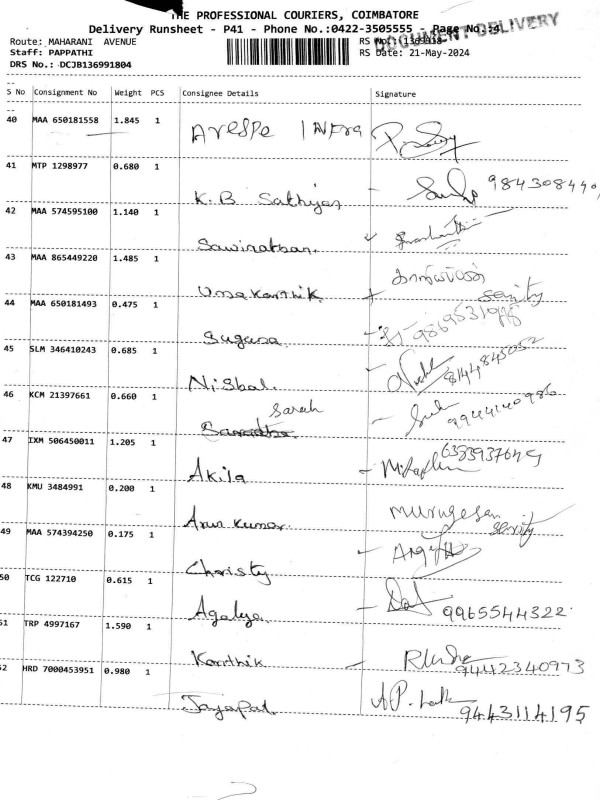 THE PROFESSIONAL COURIERS, COIMBATORE
Delivery Runsheet - P41 - Phone No.:0422-3505555 - Page No.:4
DOCUMENT DELIVERY
Route: MAHARANI AVENUE RS No.:
Staff: PAPPATHI RS Date: 21-May-2024
DRS No.: DCJB136991804
S No Consignment No Weight PCS Consignee Details Signature
40 MAA 650181558 1.845 1 Avespe Infra
41 MTP 1298977 0.680 1 K.B Sathiyan
42 MAA 574595100 1.140 1
43 MAA 865449220 1.485 1 Uma Karthik
44 MAA 650181493 0.475 1 Suguna
45 SLM 346410243 0.685 1 Nishal 8144845052
46 KCM 21397661 0.660 1 Sarah 9944140986
47 IXM 506450011 1.205 1 Akila
48 KMU 3484991 0.200 1 Arun Kumar Murugesan
49 MAA 574394250 0.175 1 Christy
50 TCG 122710 0.615 1 Agalya 9965544322
51 TRP 4997167 1.590 1 Karthik 9442340973
52 HRD 7000453951 0.980 1 Jayapal 9443114195